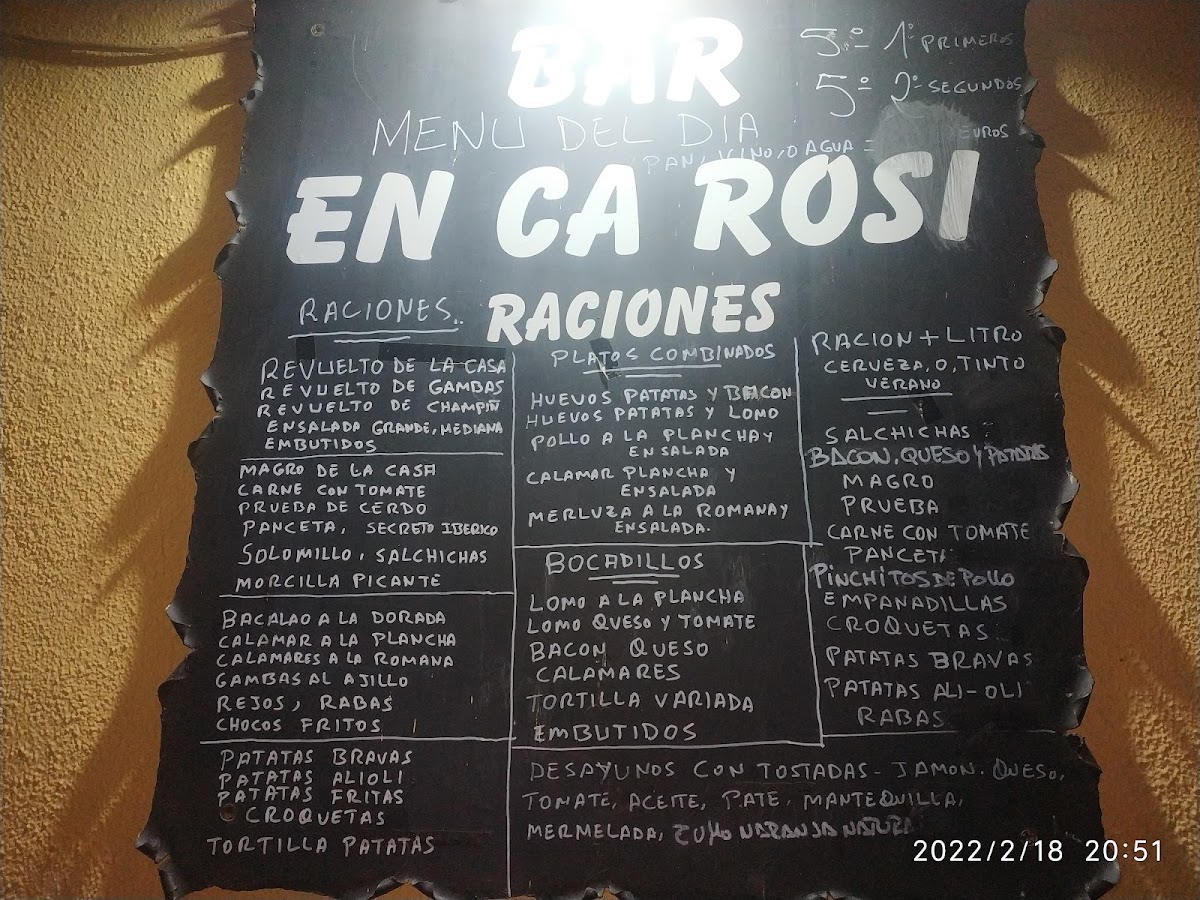 BAR
5º- 1º PRIMEROS
5º 2º- SEGUNDOS
MENU DEL DIA
PAN, VINO, O AGUA =
EUROS
EN CA ROSI
RACIONES
RACIONES..
REVUELTO DE LA CASA
REVUELTO DE GAMBAS
REVUELTO DE CHAMPIÑ
ENSALADA GRANDE, MEDIANA
EMBUTIDOS
MAGRO DE LA CASA
CARNE CON TOMATE
PRUEBA DE CERDO
PANCETA, SECRETO IBERICO
SOLOMILLO, SALCHICHAS
MORCILLA PICANTE
BACALAO A LA DORADA
CALAMAR A LA PLANCHA
CALAMARES A LA ROMANA
GAMBAS AL AJILLO
REJOS, RABAS
CHOCOS FRITOS
PATATAS BRAVAS
PATATAS ALIOLI
PATATAS FRITAS
CROQUETAS
TORTILLA PATATAS
PLATOS COMBINADOS
HUEVOS PATATAS Y BACON
HUEVOS PATATAS Y LOMO
POLLO A LA PLANCHA Y
ENSALADA
CALAMAR PLANCHA Y
ENSALADA
MERLUZA A LA ROMANA Y
ENSALADA.
BOCADILLOS
LOMO A LA PLANCHA
LOMO QUESO Y TOMATE
BACON QUESO
CALAMARES
TORTILLA VARIADA
EMBUTIDOS
RACION + LITRO
CERVEZA, O, TINTO
VERANO
SALCHICHAS
BACON, QUESO Y PATATAS
MAGRO
PRUEBA
CARNE CON TOMATE
PANCETA
PINCHITOS DE POLLO
EMPANADILLAS
CROQUETAS
PATATAS BRAVAS
PATATAS ALI-OLI
RABAS
DESAYUNOS CON TOSTADAS - JAMON. QUESO,
TOMATE, ACEITE, PATE, MANTEQUILLA,
MERMELADA, ZUMO NARANJA NATURA
2022/2/18 20:51